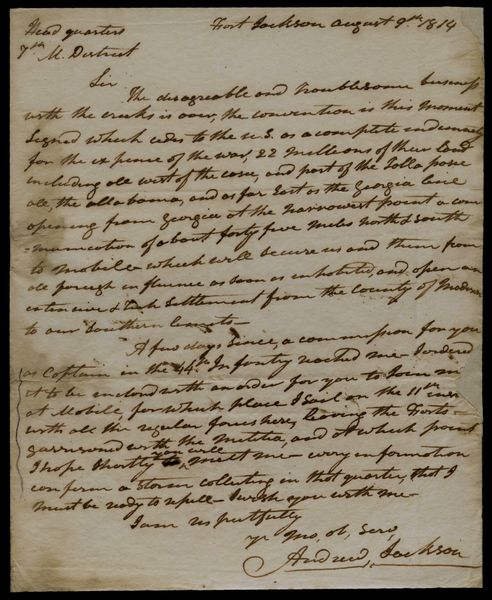 Head quarters Fort Jackson august 9th 1814
7th M. District
Sir
The disagreeable and troublesome business
with the creeks is over, the convention is this moment
signed which cedes to the u.s. as a complete indemnity
for the expence of the war, 22 millions of their land
including all west of the cosee, and part of the Tallapose
all, the allabama, and as far East as the Georgia line
opening from Georgia at the narrowest point a com
=munication of about forty five miles north & south
to mobile which will secure us and them from
all foreign influence as soon as inhabited, and open an
extensive & rich settlement from the County of Madison
to our Southern limits—
A few days since, a commission for you
as Captain in the 44th Infantry reached me— I ordered
it to be inclosed with an order for you to Join me
at Mobile, for which place I sail on the 11th inst
with all the regular forces here, leaving the Forts
garrisoned with the militia, and at which point
I hope shortly you will meet me— every information
confirm a storm collecting in that quarter, that I
must be ready to repell— I wish you with me—
I am respectfully
yr mo, ob, serv,
Andrew Jackson